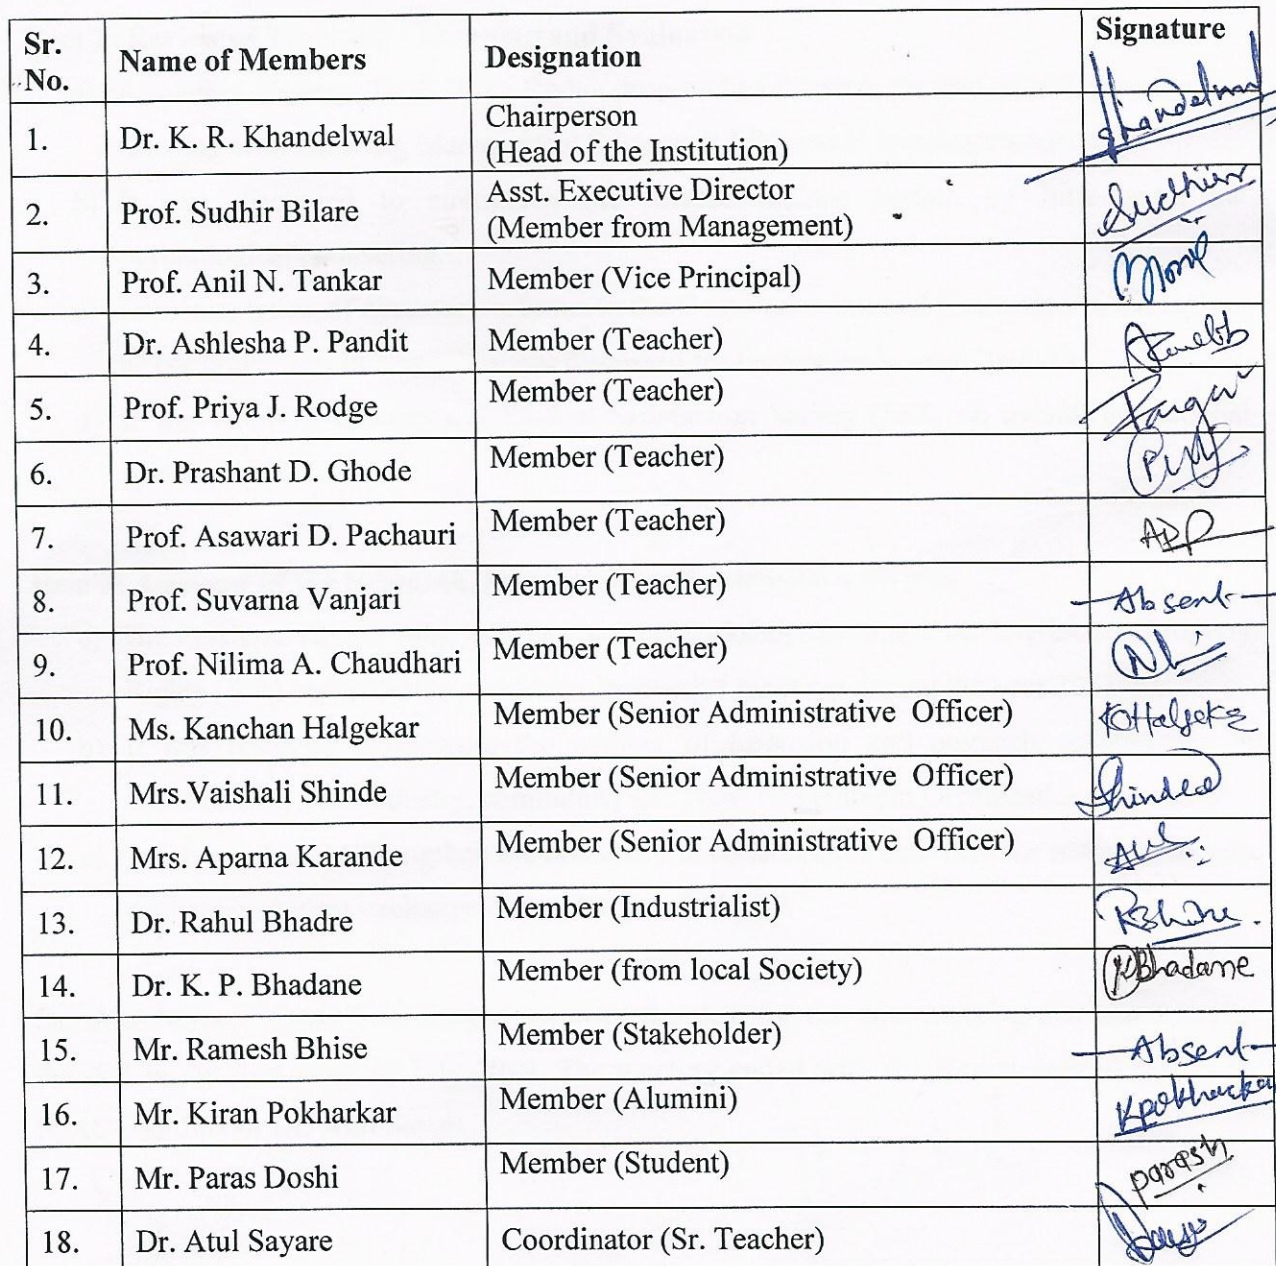 Sr. No. Name of Members Designation Signature
1. Dr. K. R. Khandelwal Chairperson (Head of the Institution) Khandelwal
2. Prof. Sudhir Bilare Asst. Executive Director (Member from Management) Sudhir
3. Prof. Anil N. Tankar Member (Vice Principal)
4. Dr. Ashlesha P. Pandit Member (Teacher)
5. Prof. Priya J. Rodge Member (Teacher)
6. Dr. Prashant D. Ghode Member (Teacher)
7. Prof. Asawari D. Pachauri Member (Teacher) ADP
8. Prof. Suvarna Vanjari Member (Teacher) Absent
9. Prof. Nilima A. Chaudhari Member (Teacher)
10. Ms. Kanchan Halgekar Member (Senior Administrative Officer) KHalgekar
11. Mrs.Vaishali Shinde Member (Senior Administrative Officer) Shinde
12. Mrs. Aparna Karande Member (Senior Administrative Officer)
13. Dr. Rahul Bhadre Member (Industrialist)
14. Dr. K. P. Bhadane Member (from local Society) KBhadane
15. Mr. Ramesh Bhise Member (Stakeholder) Absent
16. Mr. Kiran Pokharkar Member (Alumini) Kpokharkar
17. Mr. Paras Doshi Member (Student) parash
18. Dr. Atul Sayare Coordinator (Sr. Teacher)